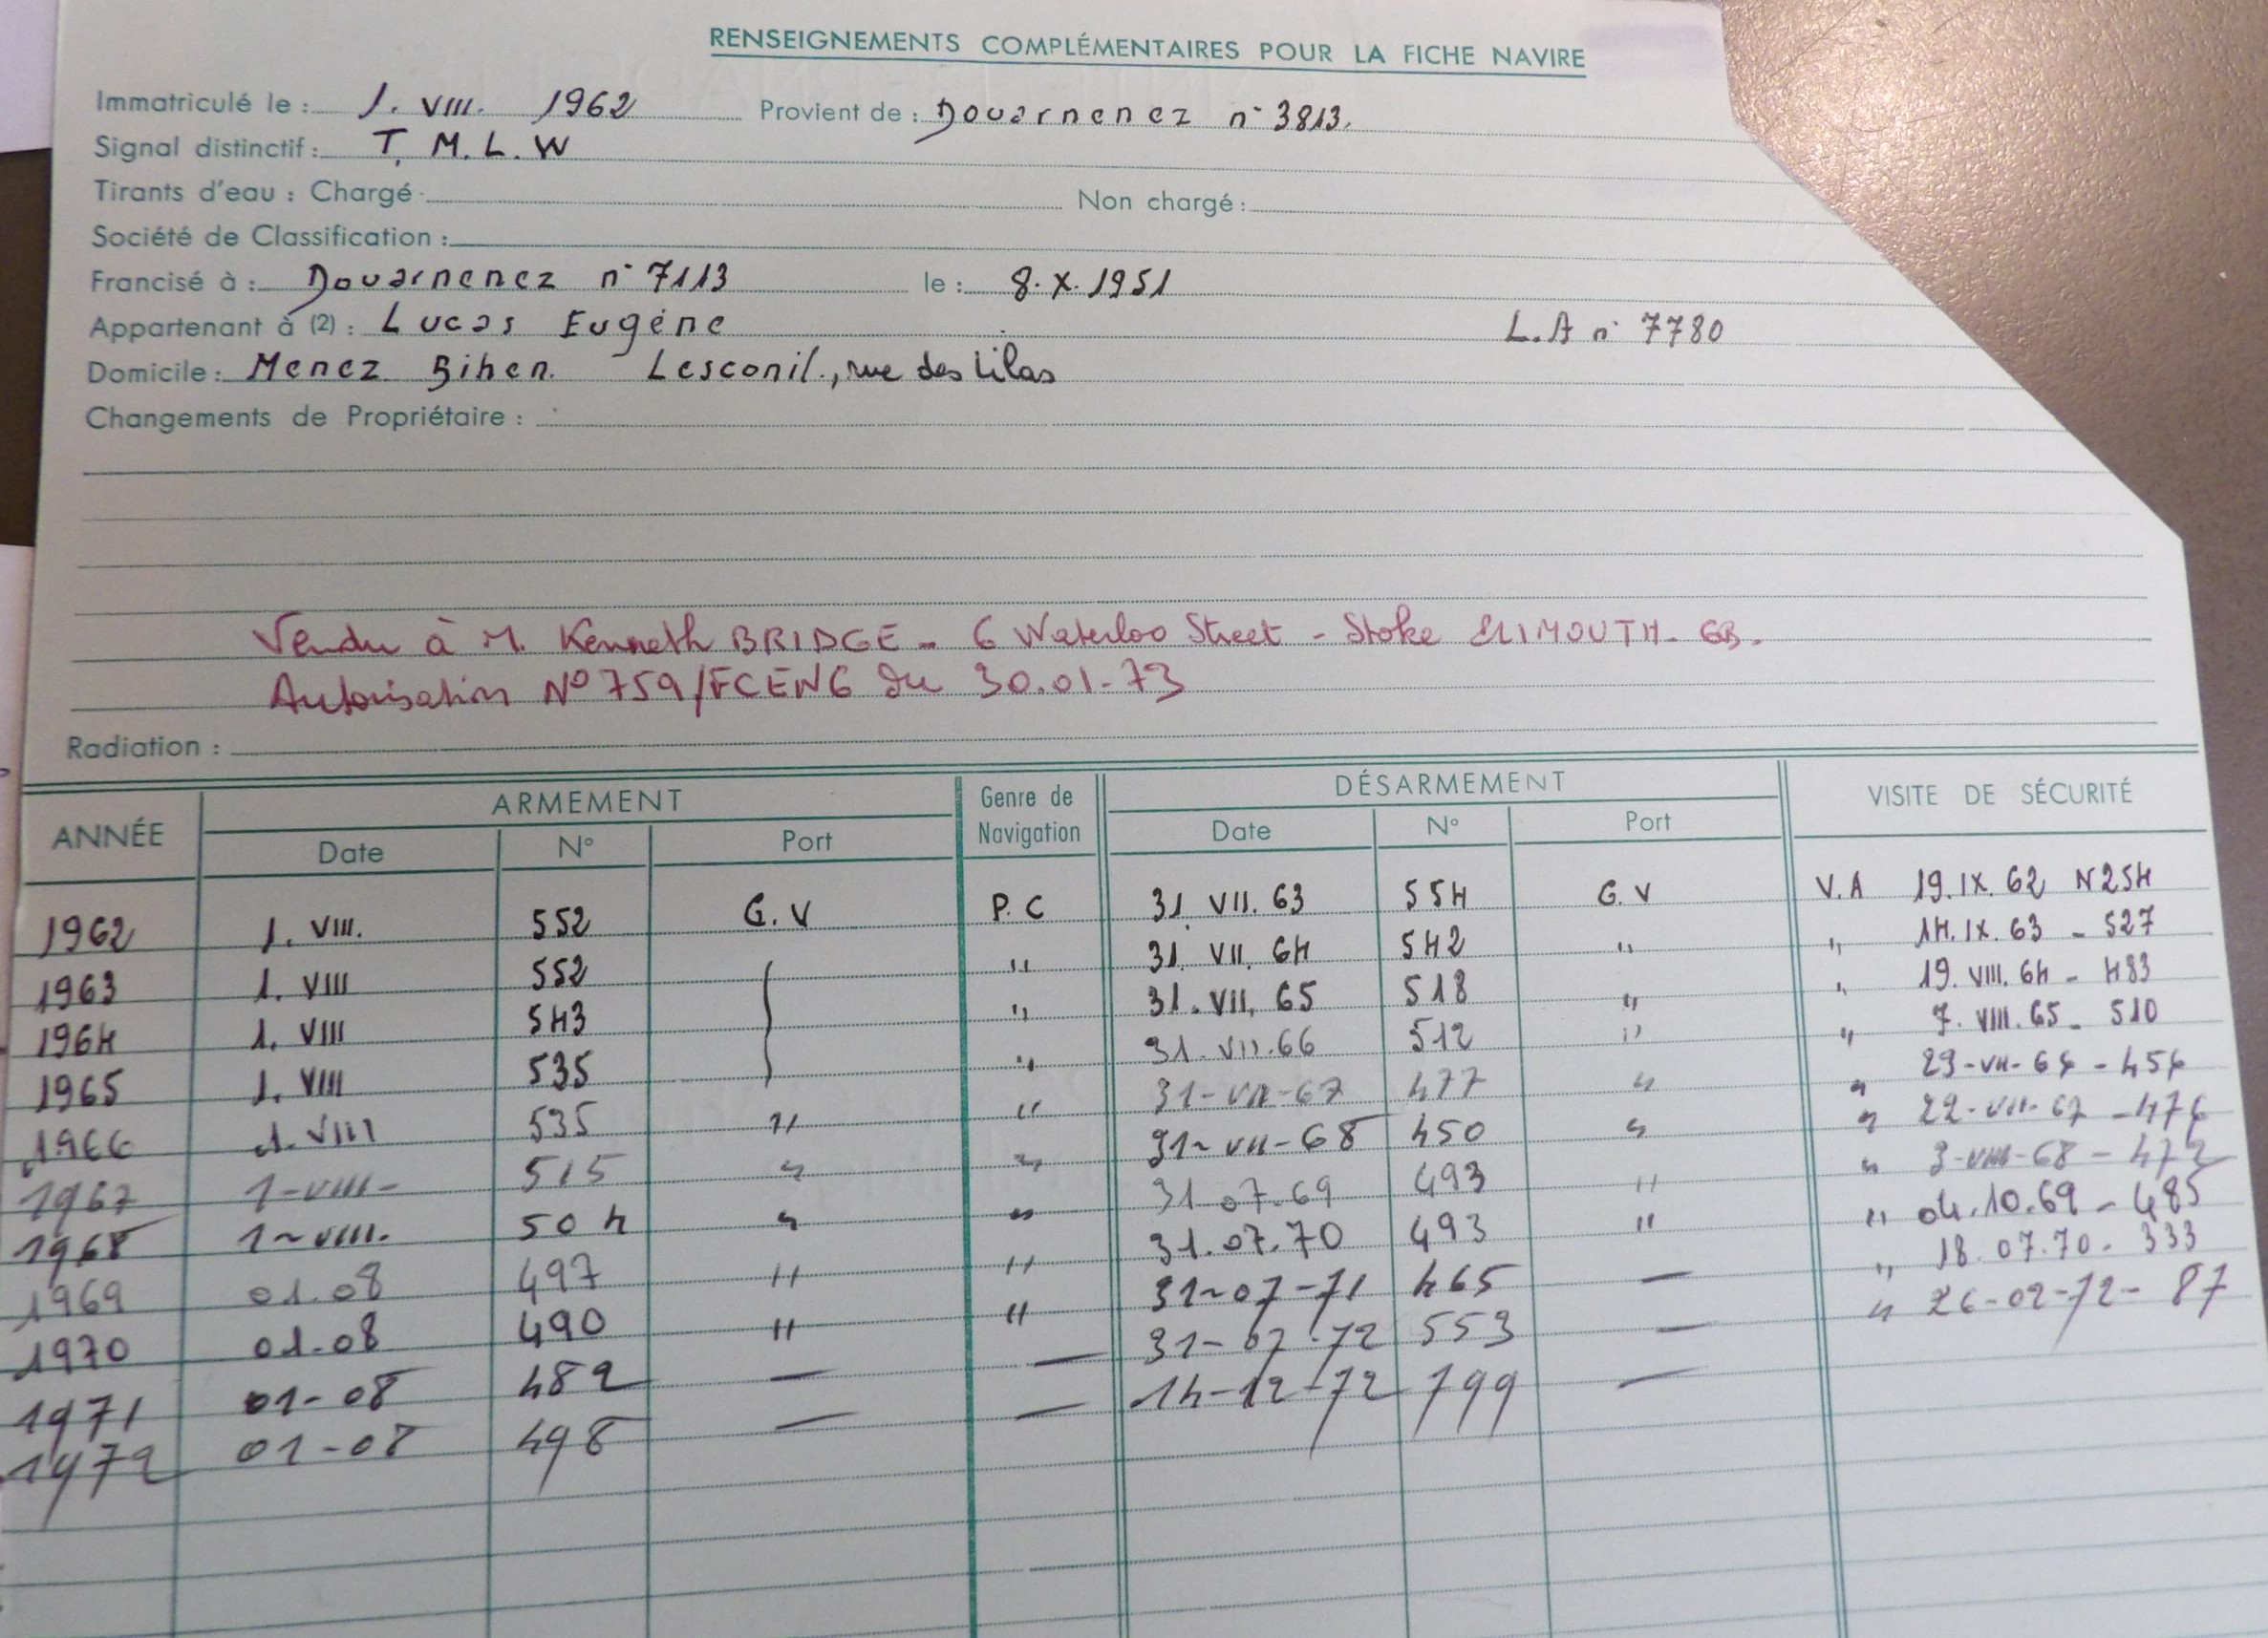 RENSEIGNEMENTS COMPLÉMENTAIRES POUR LA FICHE NAVIRE
Immatriculé le : 1. VIII. 1962 Provient de : Douarnenez n° 3813.
Signal distinctif : T. M. L. W
Tirants d'eau : Chargé Non chargé :
Société de Classification :
Francisé à : Douarnenez n° 7113 le : 8. X. 1951
Appartenant à (2) : Lucas Eugène L.A n° 7780
Domicile : Menez Bihen. Lesconil., rue des Lilas
Changements de Propriétaire :
Vendu à M. Kenneth BRIDGE - 6 Waterloo Street - Stoke GB.
Autorisation N° 759/FCEN6 du 30.01-73
Radiation :
ANNÉE ARMEMENT Genre de Navigation DÉSARMEMENT VISITE DE SÉCURITÉ
Date N° Port Date N° Port
1962 1. VIII. 552 G. V P. C 31. VII. 63 554 G. V V. A 19. IX. 62 N 254
1963 1. VIII 552 " 31. VII. 64 542 " " 14. IX. 63 - 527
1964 1. VIII 543 " 31. VII. 65 518 " " 19. VIII. 64 - 483
1965 1. VIII 535 " 31. VII. 66 512 " " 7. VIII. 65 - 510
1966 1. VIII 535 " " 31-VII-67 477 " " 29-VII-66 - 456
1967 1-VIII- 515 " " 31-VII-68 450 " " 22-VII-67 - 476
1968 1-VIII. 504 " " 31.07.69 493 " " 3-VIII-68 - 472
1969 01.08 497 " " 31.07.70 493 " " 04.10.69 - 485
1970 01.08 490 " " 31-07-71 465 — " 18.07.70. 333
1971 01-08 482 — — 31-07-72 553 — " 26-02-72 - 87
1972 01-08 498 — — 14-12-72 799 —